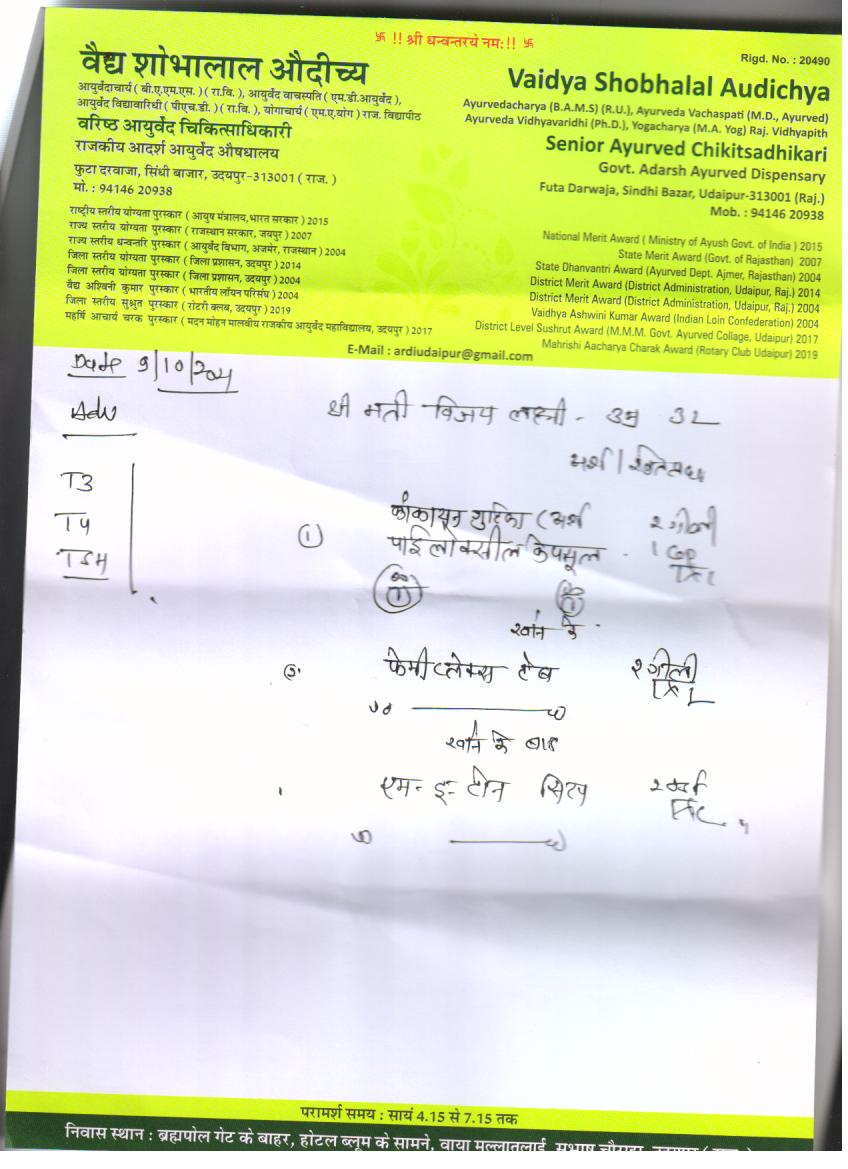 卐 !! श्री धन्वन्तरये नमः!! 卐
Rigd. No. : 20490
वैद्य शोभालाल औदीच्य
आयुर्वेदाचार्य ( बी.ए.एम.एस. ) ( रा.वि. ), आयुर्वेद वाचस्पति ( एम.डी.आयुर्वेद ),
आयुर्वेद विद्यावारिधी ( पीएच.डी. ) ( रा.वि. ), योगाचार्य ( एम.ए.योग ) राज. विद्यापीठ
वरिष्ठ आयुर्वेद चिकित्साधिकारी
राजकीय आदर्श आयुर्वेद औषधालय
फुटा दरवाजा, सिंधी बाजार, उदयपुर-313001 ( राज. )
मो. : 94146 20938
राष्ट्रीय स्तरीय योग्यता पुरस्कार ( आयुष मंत्रालय,भारत सरकार ) 2015
राज्य स्तरीय योग्यता पुरस्कार ( राजस्थान सरकार, जयपुर ) 2007
राज्य स्तरीय धन्वन्तरि पुरस्कार ( आयुर्वेद विभाग, अजमेर, राजस्थान ) 2004
जिला स्तरीय योग्यता पुरस्कार ( जिला प्रशासन, उदयपुर ) 2014
जिला स्तरीय योग्यता पुरस्कार ( जिला प्रशासन, उदयपुर ) 2004
वैद्य अश्विनी कुमार पुरस्कार ( भारतीय लॉयन परिसंघ ) 2004
जिला स्तरीय सुश्रुत पुरस्कार ( रोटरी क्लब, उदयपुर ) 2019
महर्षि आचार्य चरक पुरस्कार ( मदन मोहन मालवीय राजकीय आयुर्वेद महाविद्यालय, उदयपुर ) 2017
Vaidya Shobhalal Audichya
Ayurvedacharya (B.A.M.S) (R.U.), Ayurveda Vachaspati (M.D., Ayurved)
Ayurveda Vidhyavaridhi (Ph.D.), Yogacharya (M.A. Yog) Raj. Vidhyapith
Senior Ayurved Chikitsadhikari
Govt. Adarsh Ayurved Dispensary
Futa Darwaja, Sindhi Bazar, Udaipur-313001 (Raj.)
Mob. : 94146 20938
National Merit Award ( Ministry of Ayush Govt. of India ) 2015
State Merit Award (Govt. of Rajasthan) 2007
State Dhanvantri Award (Ayurved Dept. Ajmer, Rajasthan) 2004
District Merit Award (District Administration, Udaipur, Raj.) 2014
District Merit Award (District Administration, Udaipur, Raj.) 2004
Vaidhya Ashwini Kumar Award (Indian Loin Confederation) 2004
District Level Sushrut Award (M.M.M. Govt. Ayurved Collage, Udaipur) 2017
Mahrishi Aacharya Charak Award (Rotary Club Udaipur) 2019
E-Mail : ardiudaipur@gmail.com
Date 9/10/2021
Adv
श्री मती विजय लक्ष्मी - उम्र 32
अर्श /
T3
T4
TSH
① कांकायन गुटिका (अर्श २ गोली
पाईलोक्सील केपसूल - 1 Cap
खाने के
फेमीप्लेक्स टेब २ गोली
खाने के बाद
एम-इ-टोन सिरप २
परामर्श समय : सायं 4.15 से 7.15 तक
निवास स्थान : ब्रह्मपोल गेट के बाहर, होटल ब्लूम के सामने, वाया मल्लातलाई, सुभाष चौराहा,